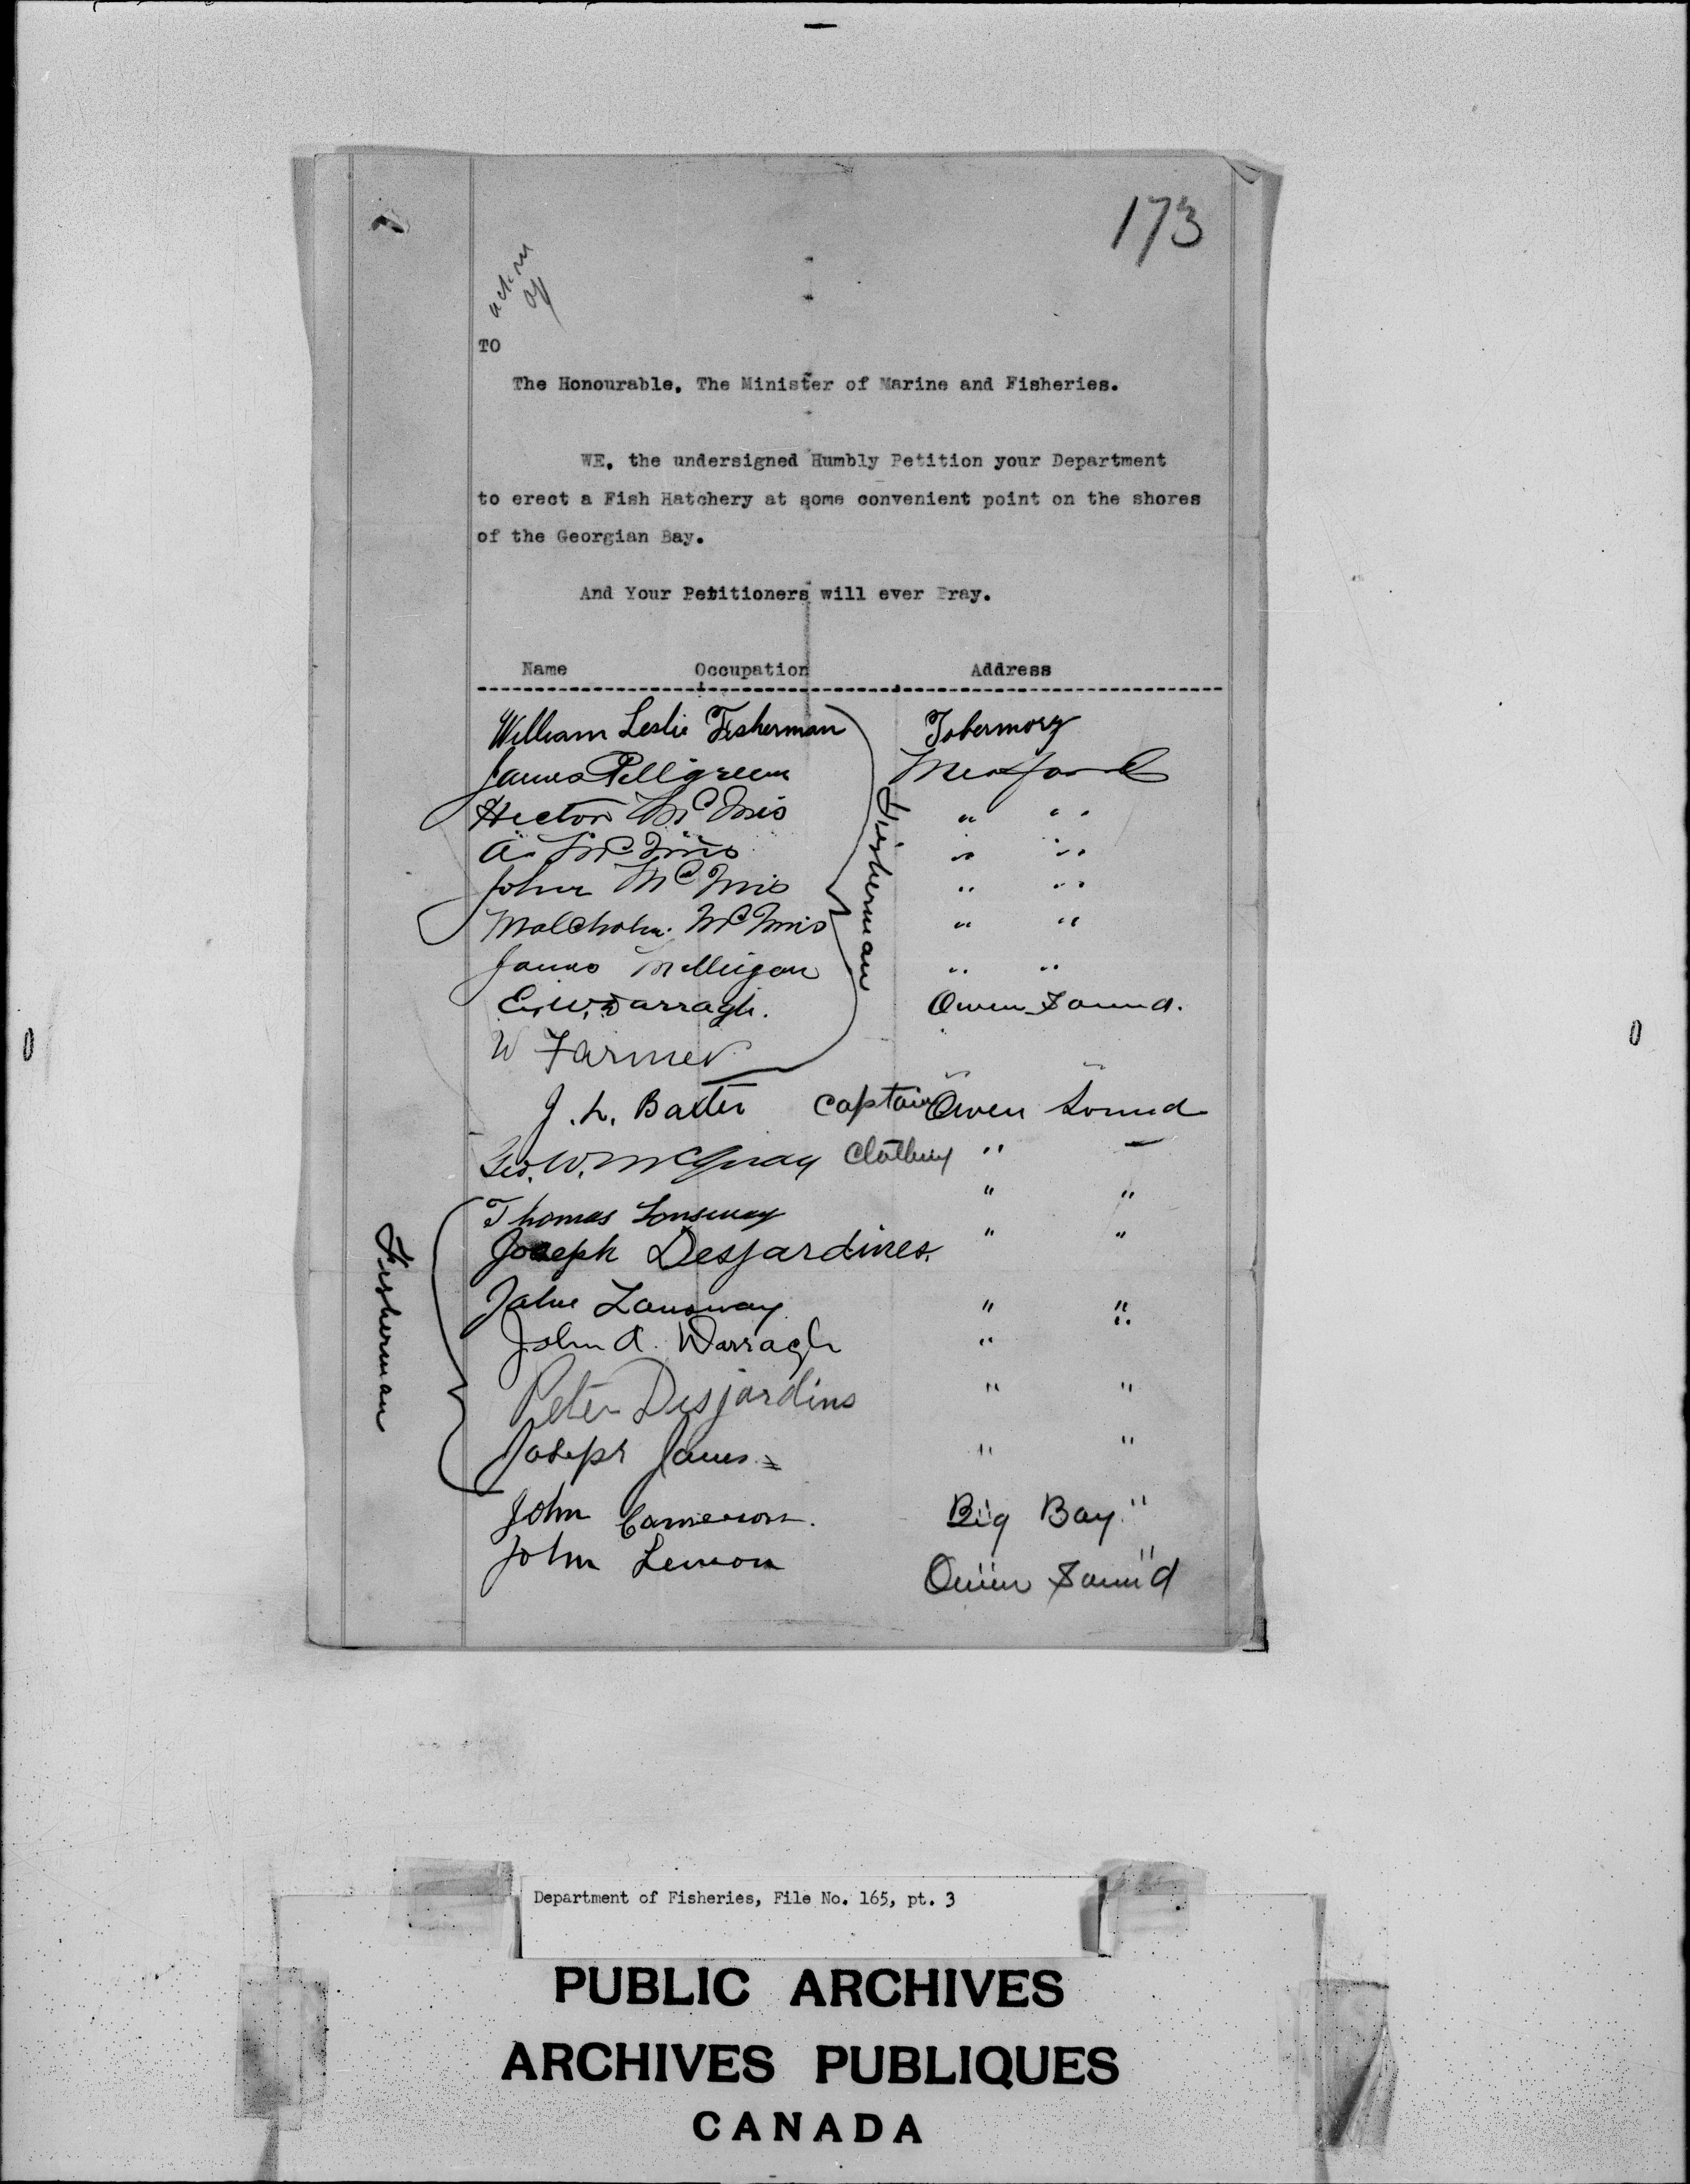 173
TO
The Honourable, The Minister of Marine and Fisheries.
WE, the undersigned Humbly Petition your Department
to erect a Fish Hatchery at some convenient point on the shores
of the Georgian Bay.
And Your Petitioners will ever Pray.
Name Occupation Address
William Leslie Fisherman Tobermory
James Pillgreem Meaford
Hector McInis " "
A. McInis " "
John McInis " "
Malcholm McInis " "
James Milligan " "
Fisherman
E. W. Darragh. Owen Sound.
W Farmer
J. L. Baxter Captain Owen Sound
Geo. W. McQuay Clothing " "
Thomas Lonsway " "
Joseph Desjardines. " "
John Lansway " "
John A. Darragh " "
Peter Desjardins " "
Joseph James " "
Fisherman
John Cameron. Big Bay
John Lemon Owen Sound
Department of Fisheries, File No. 165, pt. 3
PUBLIC ARCHIVES
ARCHIVES PUBLIQUES
CANADA